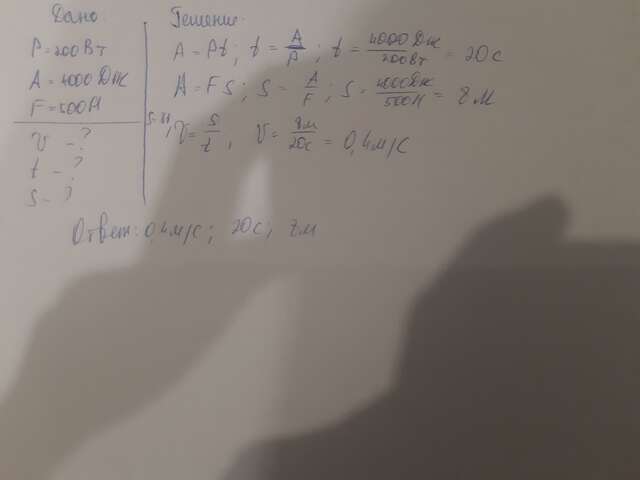 Дано:
P = 200 Вт
A = 4000 Дж
F = 500 Н
v - ?
t - ?
s - ?
Решение:
A = Pt; t = A/P; t = 4000 Дж/200 Вт = 20 с
A = FS; S = A/F; S = 4000 Дж/500 Н = 8 м
v = s/t, v = 8м/20с = 0,4 м/с
Ответ: 0,4 м/с; 20 с; 8 м